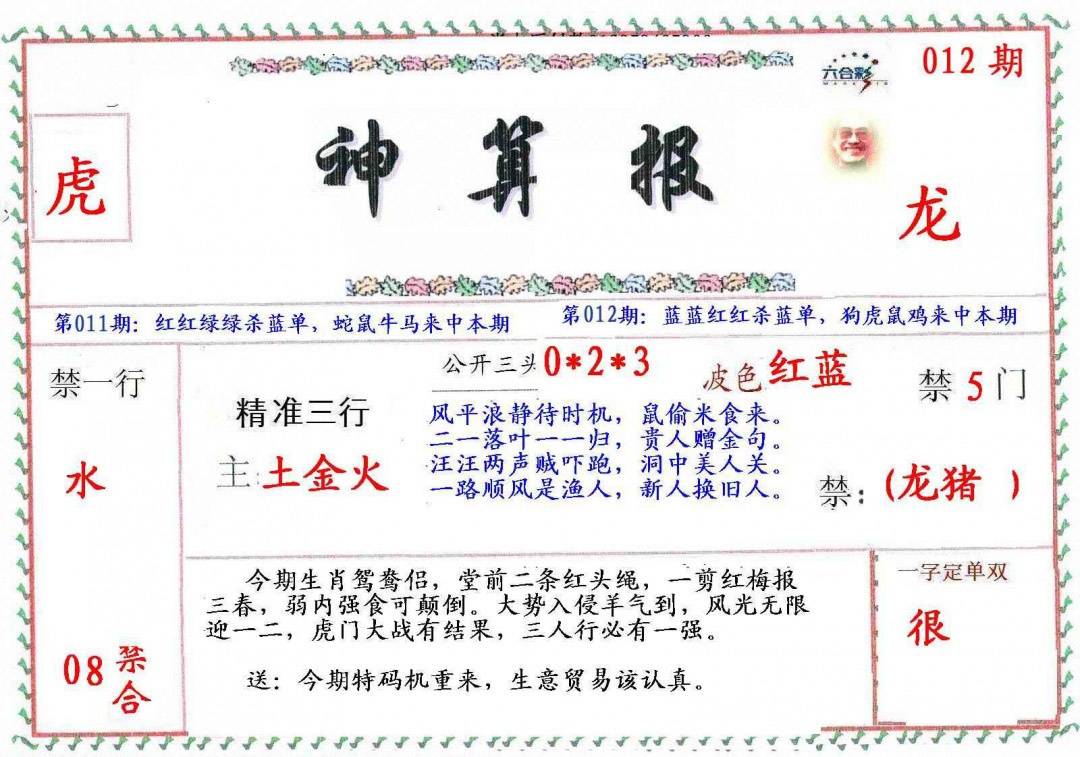 六合彩
012 期
虎
神算报
龙
第011期：红红绿绿杀蓝单，蛇鼠牛马来中本期
第012期：蓝蓝红红杀蓝单，狗虎鼠鸡来中本期
禁一行
水
08 禁合
公开三头 0*2*3
波色 红蓝
禁 5 门
精准三行
主:土金火
风平浪静待时机，鼠偷米食来。
二一落叶一一归，贵人赠金句。
汪汪两声贼吓跑，洞中美人关。
一路顺风是渔人，新人换旧人。
禁:(龙猪 )
今期生肖鸳鸯侣，堂前二条红头绳，一剪红梅报
三春，弱内强食可颠倒。大势入侵羊气到，风光无限
迎一二，虎门大战有结果，三人行必有一强。
送：今期特码机重来，生意贸易该认真。
一字定单双
很